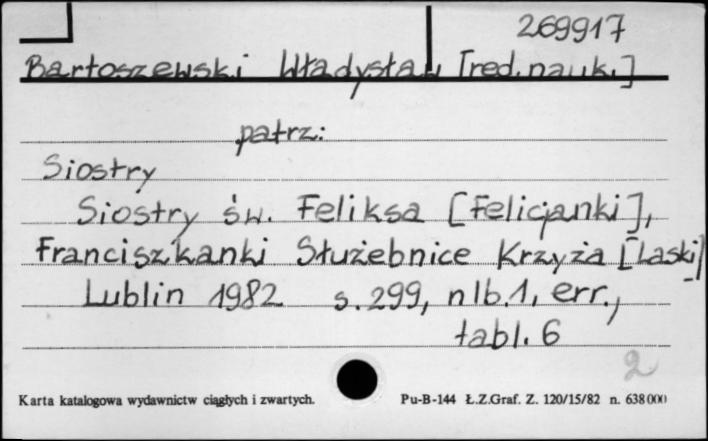 269917
Bartoszewski Władysław [red.nauk.]
patrz:
Siostry
Siostry św. Feliksa [Felicjanki],
Franciszkanki Służebnice Krzyża [Laski]
Lublin 1982 s.299, nlb.1, err.,
tabl. 6
2
Karta katalogowa wydawnictw ciągłych i zwartych. Pu-B-144 Ł.Z.Graf. Z. 120/15/82 n. 638000